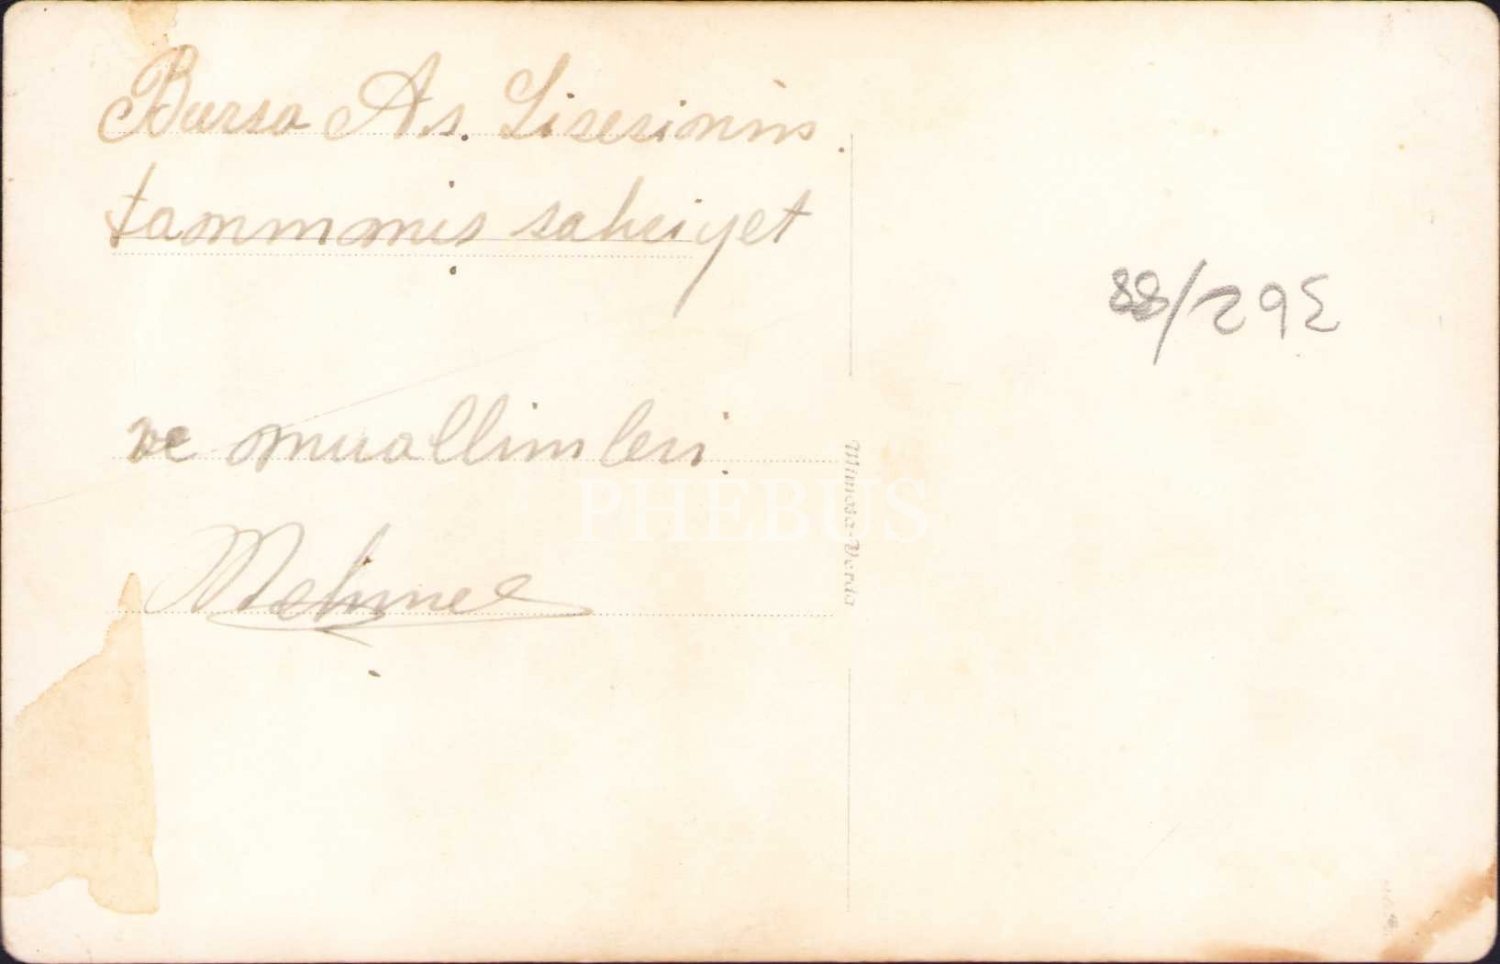 Bursa As. Lisesinin
tanınmış sahsiyet
ve muallimleri.
Mehmet
88/295
Mimosa-Verda
PHEBUS